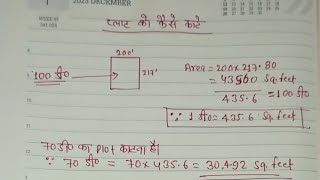 2023 DECEMBER
प्लाट को कैसे काटे
200'
100 डी०
217'
Area = 200x217.80
= 43560 Sq.feet
435.6 = 100 डी०
∵ 1 डी० = 435.6 Sq.feet
70 डी० का Plot काटना है।
∵ 70 डी० = 70x435.6 = 30,492 Sq.feet